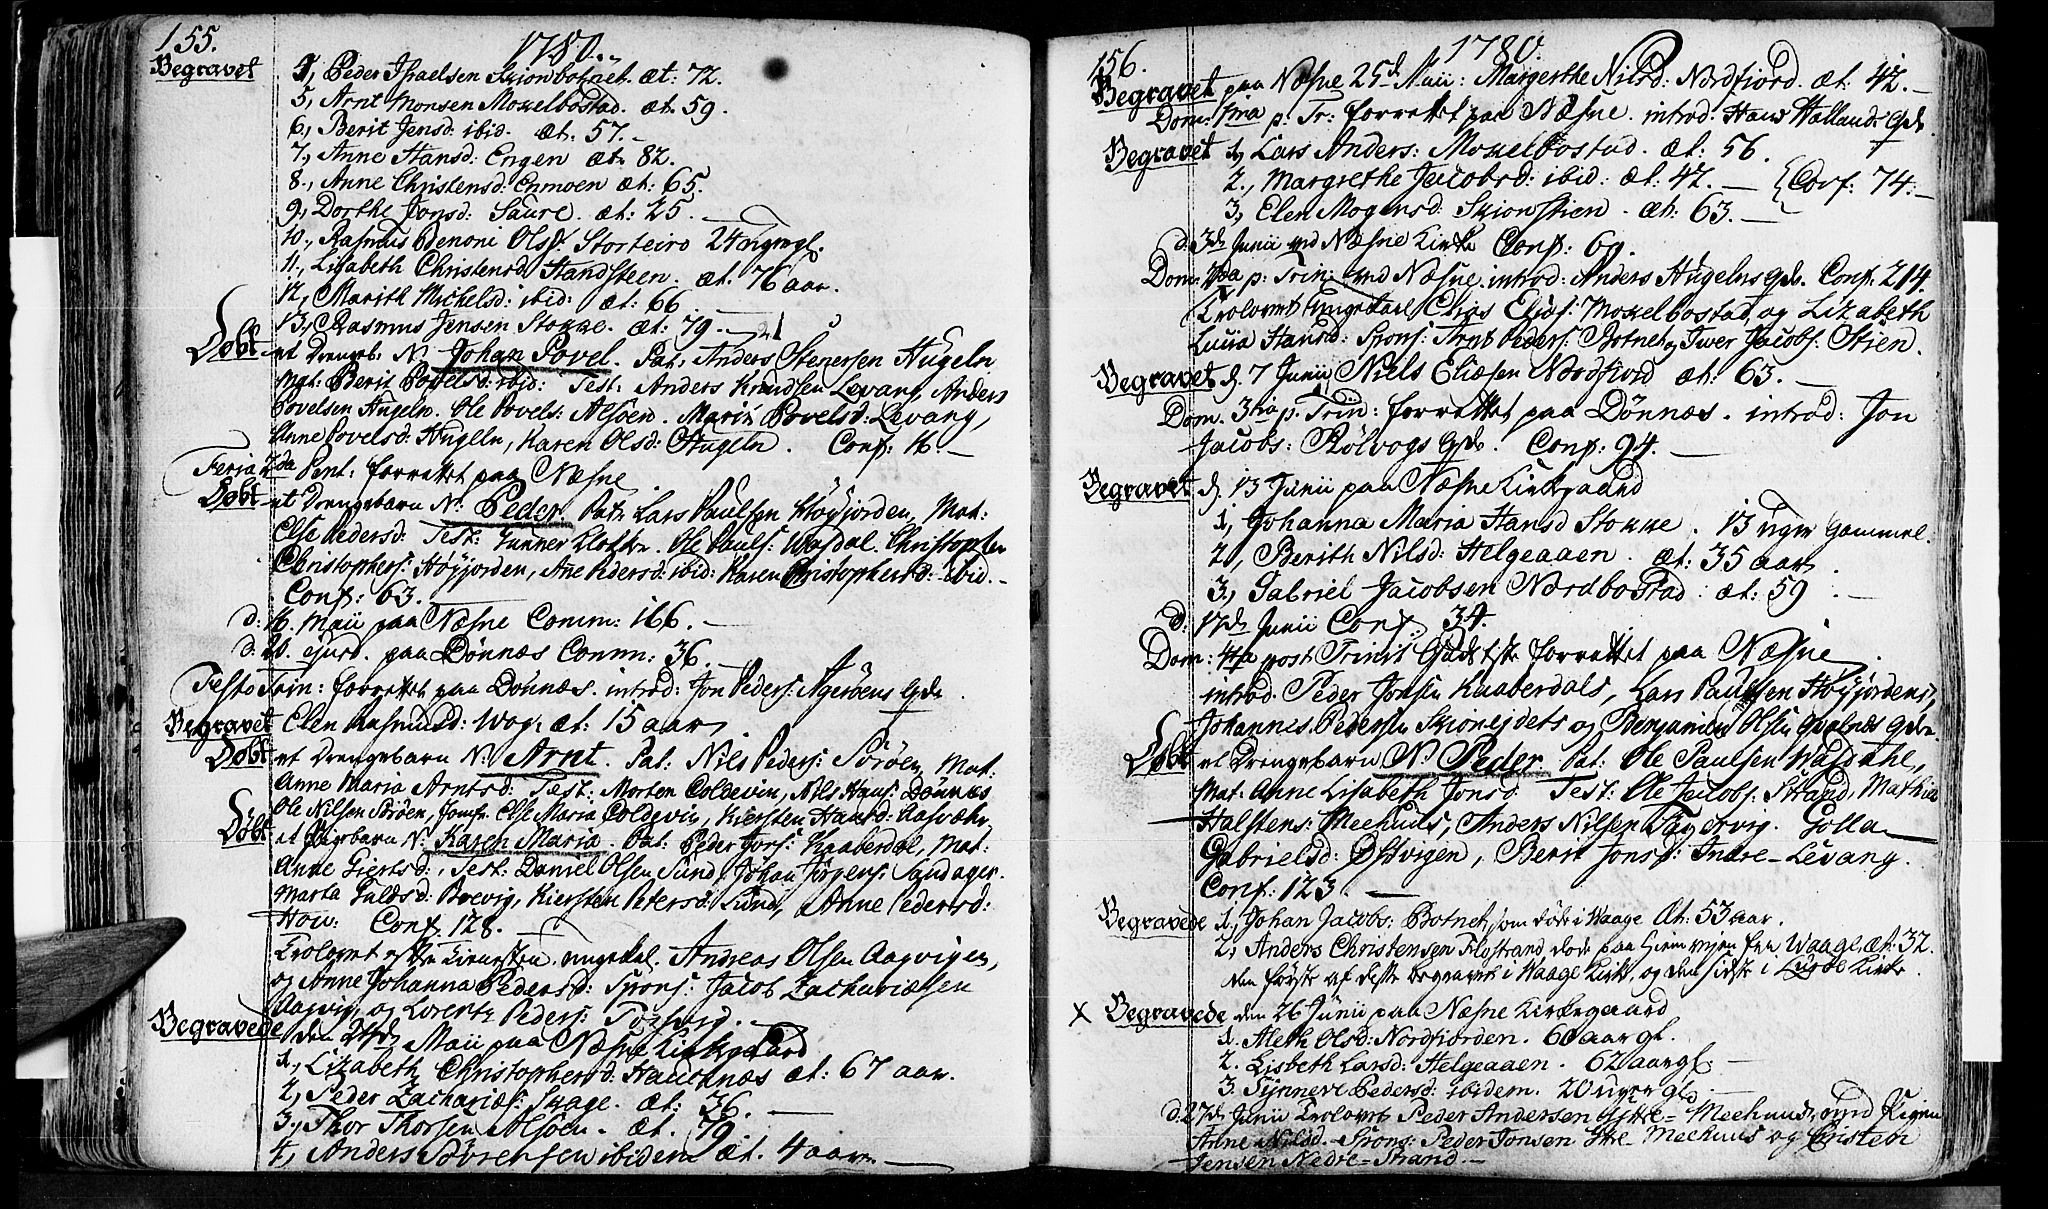 155.
1780.
Begravet
4, Peder Israelsen Skionbotnet æt: 72.
5, Arnt Monsen Moxelbostad. æt: 59.
6, Berit Jensd: ibid. æt: 57.
7, Anne Hansd: Engen æt: 82.
8, Anne Christensd: Enmoen æt: 65.
9, Dorthe Jonsd: Saure. æt: 25.
10, Rasmus Benoni Ols: Storteiro 24 uger gl.
11, Lisabeth Christensd: Standsteen. æt: 76 aar.
12, Marith Michelsd: ibid: æt: 66
13, Rasmus Jensen Stokke. æt: 79.
Døbt
et Drengeb: N: Johan Povel. Pat: Anders Stenersen Hugeln
Mat: Berit Povelsd: ibid: Test: Anders Knudsen Levang, Anders
Povelsen Hugeln. Ole Povels: Alsoen. Marit Povelsd: Levang,
Anne Povelsd: Hugeln, Karen Olsd: Hugeln. Conf: 16.
Feria 2da Pent: forrettet paa Næsne.
Døbt
et Drengebarn N: Peder. Pat: Lars Paulsen Høyjorden, Mat:
Else Pedersd: Test: Gunner Ole Pauls: Wasdal. Christopher
Christophers: Høyjorden, Anne Pedersd: ibid: Karen Christophersd: ibid.
Conf: 63.
d: 16. Maii paa Næsne Comm: 166.
d: 20. ejusd. paa Dønnæs Comm: 36.
Festo Trin: forrettet paa Dönnæs. introd: Jon Peders: Ageröens Qde.
Begravet Elen Rasmusd: Wog. æt: 15 aar
Døbt
et Drengebarn N: Arnt. Pat: Nils Peders: Sörøen, Mat:
Anne Maria Arntsd: Test: Morten Coldevin, Nils Hans: Dönnæs
Ole Nilsen Sörøen, Jomfr. Else Maria Coldevin, Kiersten Hansd: Aasvær
Døbt
et Pigebarn N: Karen Maria. Pat: Peder Jons: Kaaberdal, Mat:
Anne Giertsd: Test: Daniel Olsen Sund, Johan Jörgens: Sandager.
Marta Breevig, Kiersten Petersd: Sund, Anne Pedersd:
Hov: Conf: 128.
Trolovet ungekarl Andreas Olsen Aagvigen,
og Anne Johanna Pedersd: Spons: Jacob Zachariæsen
Aagvig, og Lorentz Peders:
Begravede den 24de Maii paa Næsne Kirkegaard
1, Lizabeth Christophersd: Hauchnæs æt: 67 aar.
2, Peder Zacharies: Skage. æt: 36.
3, Thor Thorsen Alsøen. æt. 79.
4, Anders Sörensen ibidem æt. 4 aar
156.
1780.
Begravet paa Næsne 25de Maii: Margerthe Nilsd: Nordfjord. æt: 42.
Dom: 1ma p. Tr: forrettet paa Næsne. introd: Hans Hallands Qde.
Begravet 1, Lars Anders: Moxelbostad. æt: 56.
2., Margrethe Jacobsd: ibid: æt: 42. Conf: 74.
3, Elen Mogensd: Skionstien. æt: 63.
d: 3de Junii ved Næsne Kirke Conf: 60.
Dom: 2da p: Trin: ved Næsne. introd: Anders Hugelns Qde. Conf. 214.
Trolovet Ungekarl Elias Elias: Moxelbostad, og Lizabeth
Lucia Hansd: Spons: Arnt Peders: Botnet og Iwer Jacobs: Stien.
Begravet d. 7 Junii Niels Eliæsen Nordfjord æt: 63.
Dom. 3tia p. Trin: forrettet paa Dönnæs. introd: Jon
Jacobs: Rölvogs Qde. Conf: 94.
Begravet d. 13 Junii paa Næsne Kirkgaard
1, Johanna Maria Hansd Stokke. 13 uger Gammel.
2, Berith Nilsd: Helgeaaen. æt: 35 aar.
3, Gabriel Jacobsen Nordbostad: æt: 59.
d: 17de Junii Conf: 34.
Dom: 4ta post Trinit: Gudstste forrettet paa Næsne.
introd. Peder Jonsen Kaaberdals, Lars Paulsen Høyjordens,
Johannes Pedersen Skioneidets og Benjamin Olsen Qde.
Døbt
et Drengebarn N: Peder. Pat: Ole Paulsen Wasdahl,
Mat: Anne Lisabeth Jonsd: Test: Ole Jacobs: Strand, Mathias
Halstens: Meehuus, Anders Nilsen Golla
Gabrielsd: Østvigen, Berit Jonsd: Indre-Levang.
Conf: 123.
Begravede 1, Johan Jacobs: Botnet, som döde i Waage Æt: 53 aar.
2, Anders Christensen Flostrand döde paa Hiemrejsen fra Waage æt: 32.
den første af disse begraves i Waage Kirke, og den sidste i Kirke.
x Begravede den 26 Junii paa Næsne Kirkegaard
1. Aleth Olsd: Nordfjorden. 60 aar gl.
2. Lisbeth Larsd: Helgeaaen. 62 aar gl:
3. Synneve Pedersd: ibidem. 20 uger gl.
d. 27de Junii Trolovet Peder Andersen Yttre-Meehuus, med Pigen
Anne Nilsd. Spons: Peder Jonsen Ytre-Meehuus og Cristen
Jensen Nedre-Strand.